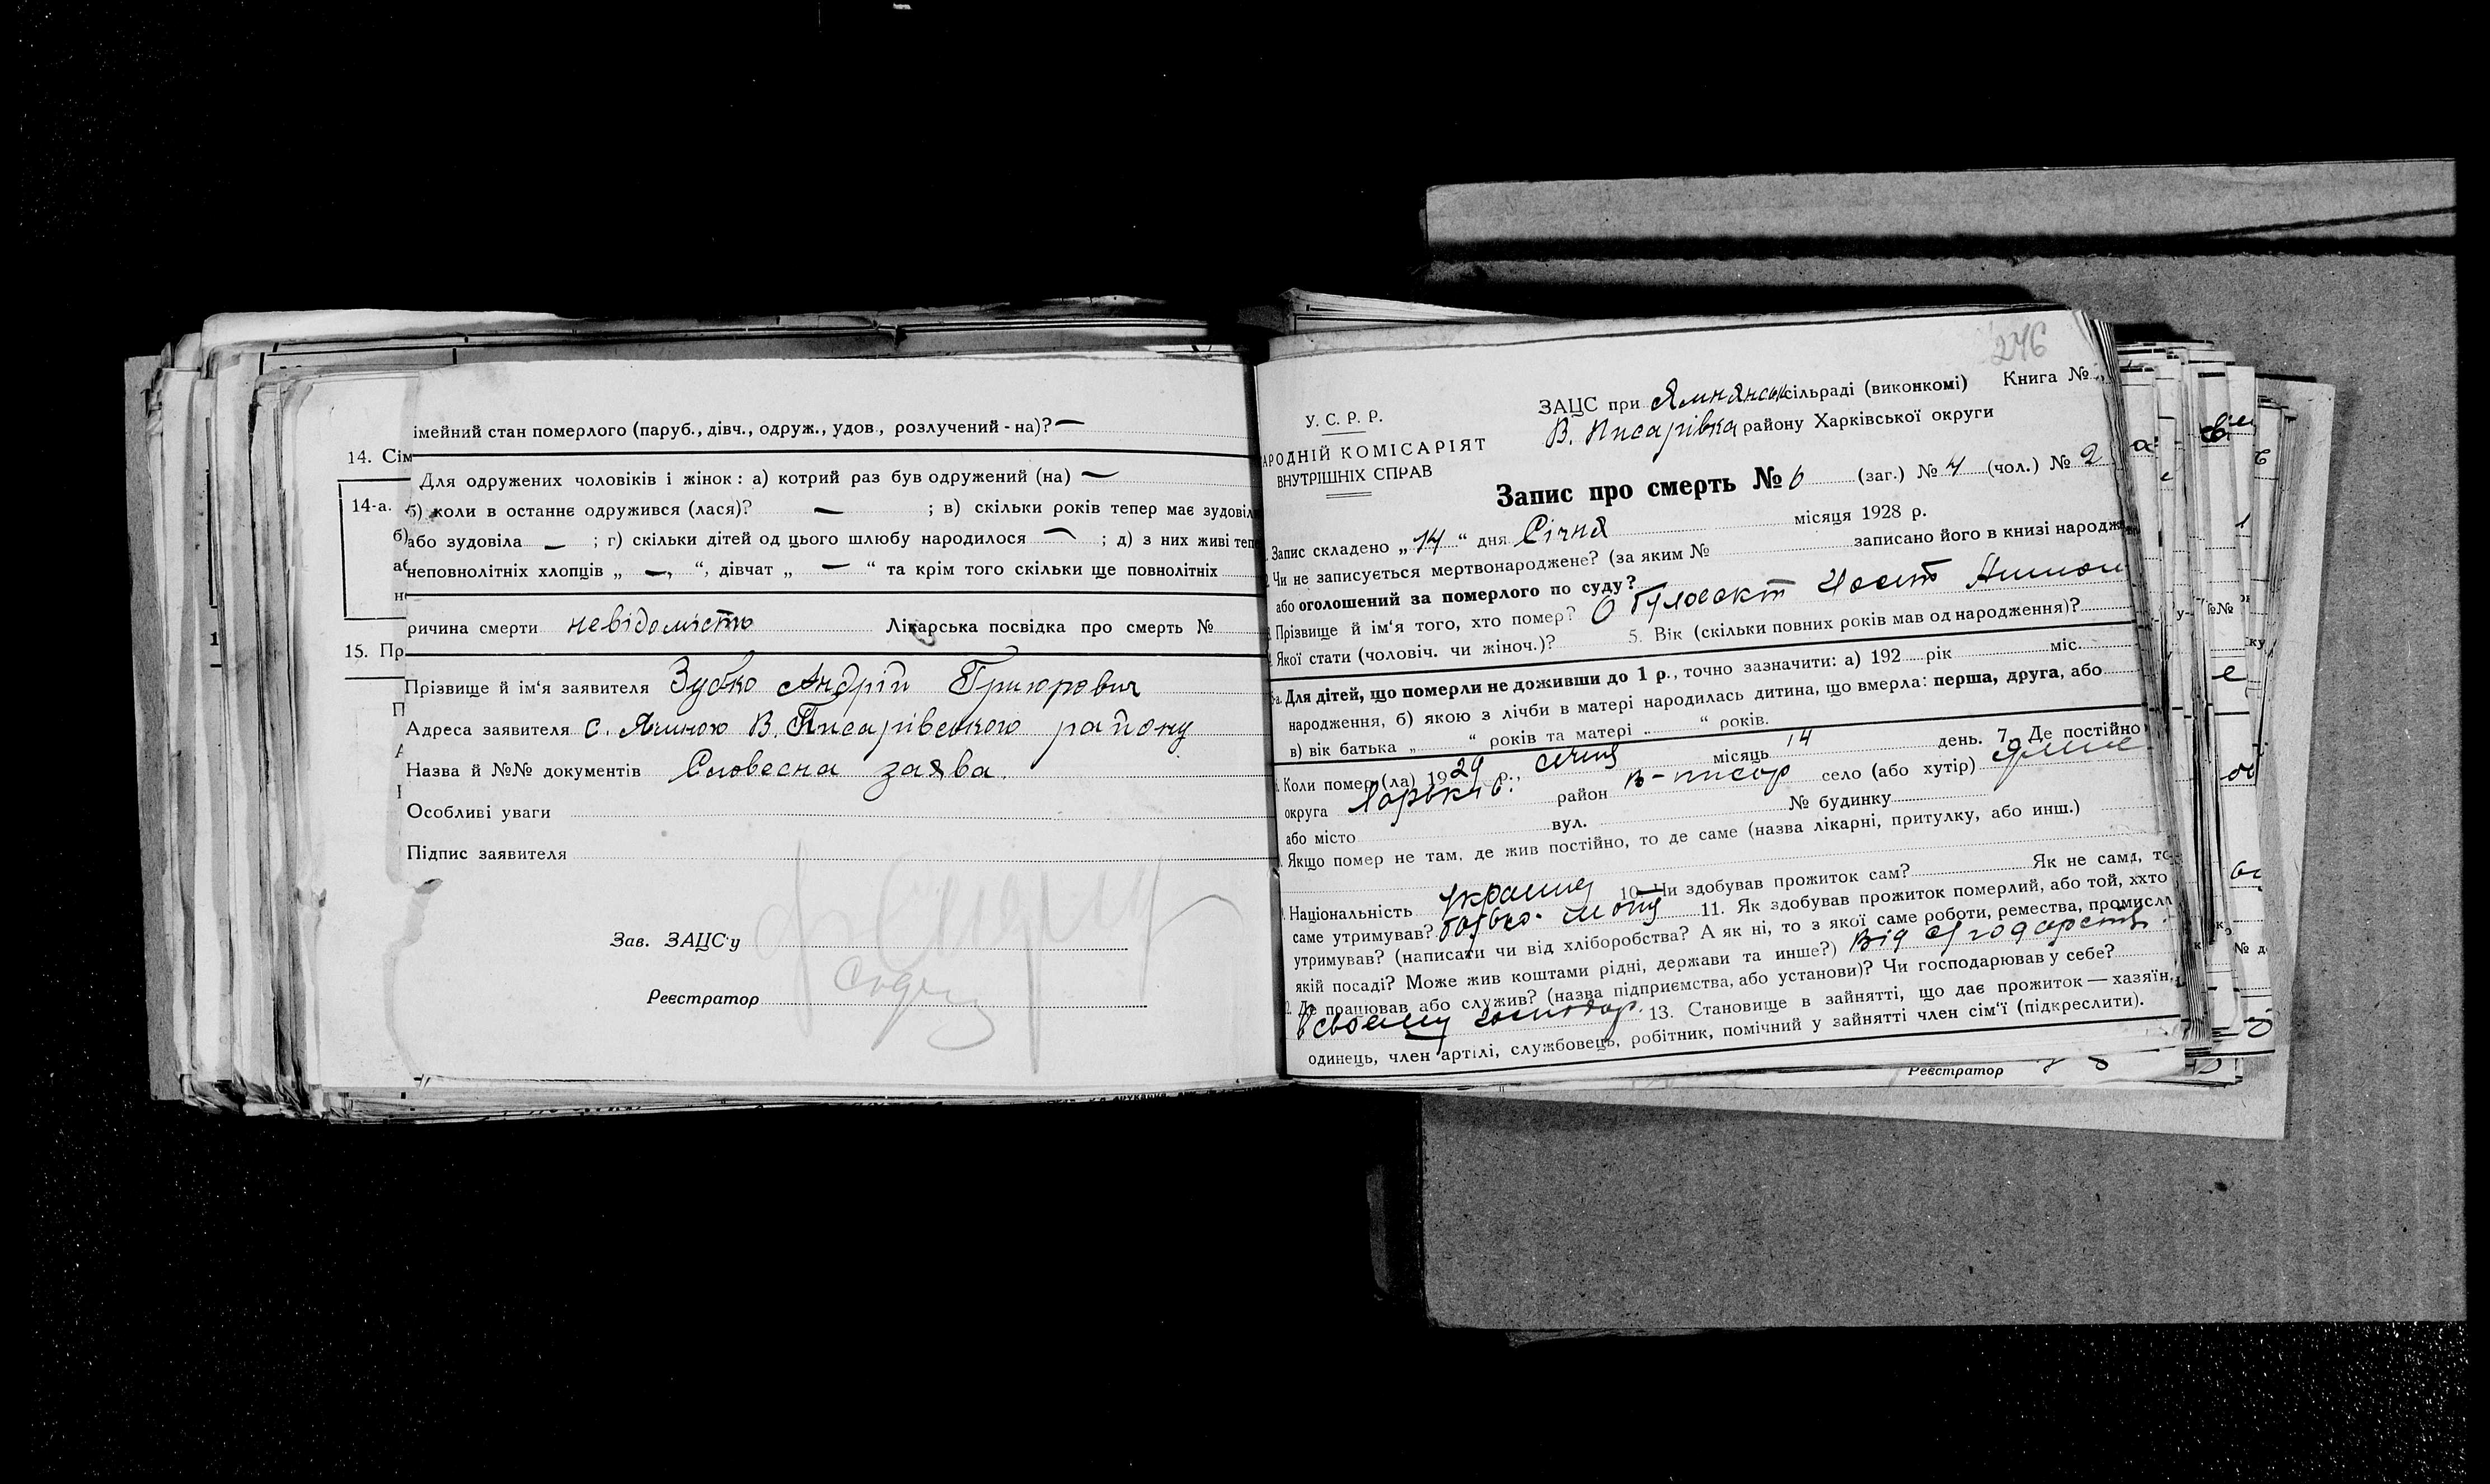 імейний стан померлого (паруб., дівч., одруж., удов., розлучений - на)? —
14. Сім
Для одружених чоловіків і жінок: а) котрий раз був одружений (на) —
14-а. б) коли в останнє одружився (лася)? — ; в) скільки років тепер має зудовіл
б) або зудовіла — ; г) скільки дітей од цього шлюбу народилося — ; д) з них живі теп
неповнолітніх хлопців „ — “, дівчат „ — “ та крім того скільки ще повнолітніх
ричина смерти невідомість Лікарська посвідка про смерть №
15. Пр
Прізвище й ім'я заявителя Зубко Андрій Григорович
Адреса заявителя с. Ямного В. Писарівського району
Назва й №№ документів Словесна заява.
Особливі уваги
Підпис заявителя
Зав. ЗАЦС'у
Реєстратор
246
У. С. Р. Р.
АРОДНІЙ КОМІСАРІЯТ
ВНУТРІШНІХ СПРАВ
ЗАЦС при Ямнянськ сільраді (виконкомі) Книга №
В. Писарівка району Харківської округи
Запис про смерть № 6 (заг.) № 4 (чол.) № 2
Запис складено „ 14 “ дня Січня місяця 1928 р.
Чи не записується мертвонароджене? (за яким № записано його в книзі народж
або оголошений за померлого по суду?
Прізвище й ім'я того, хто помер?
Якої стати (чоловіч. чи жіноч.)? 5. Вік (скільки повних років мав од народження)?
5-а. Для дітей, що померли не доживши до 1 р., точно зазначити: а) 192 рік міс.
народження, б) якою з лічби в матері народилась дитина, що вмерла: перша, друга, або
в) вік батька „ “ років та матері „ “ років.
Коли помер (ла) 1929 р., січня місяць 14 день. 7. Де постійно
округа Харьків. район В-писар село (або хутір) Ямне
або місто вул. № будинку
Якщо помер не там, де жив постійно, то де саме (назва лікарні, притулку, або инш.)
Національність 10. Чи здобував прожиток сам? Як не сам, то
саме утримував? 11. Як здобував прожиток померлий, або той, хто
утримував? (написати чи від хліборобства? А як ні, то з якої саме роботи, ремества, промисла
якій посаді? Може жив коштами рідні, держави та инше?) Від
Де працював або служив? (назва підприємства, або установи)? Чи господарював у себе?
В своему господар. 13. Становище в зайнятті, що дає прожиток — хазяїн,
одинець, член артілі, службовець, робітник, помічний у зайнятті член сім'ї (підкреслити).
Реєстратор